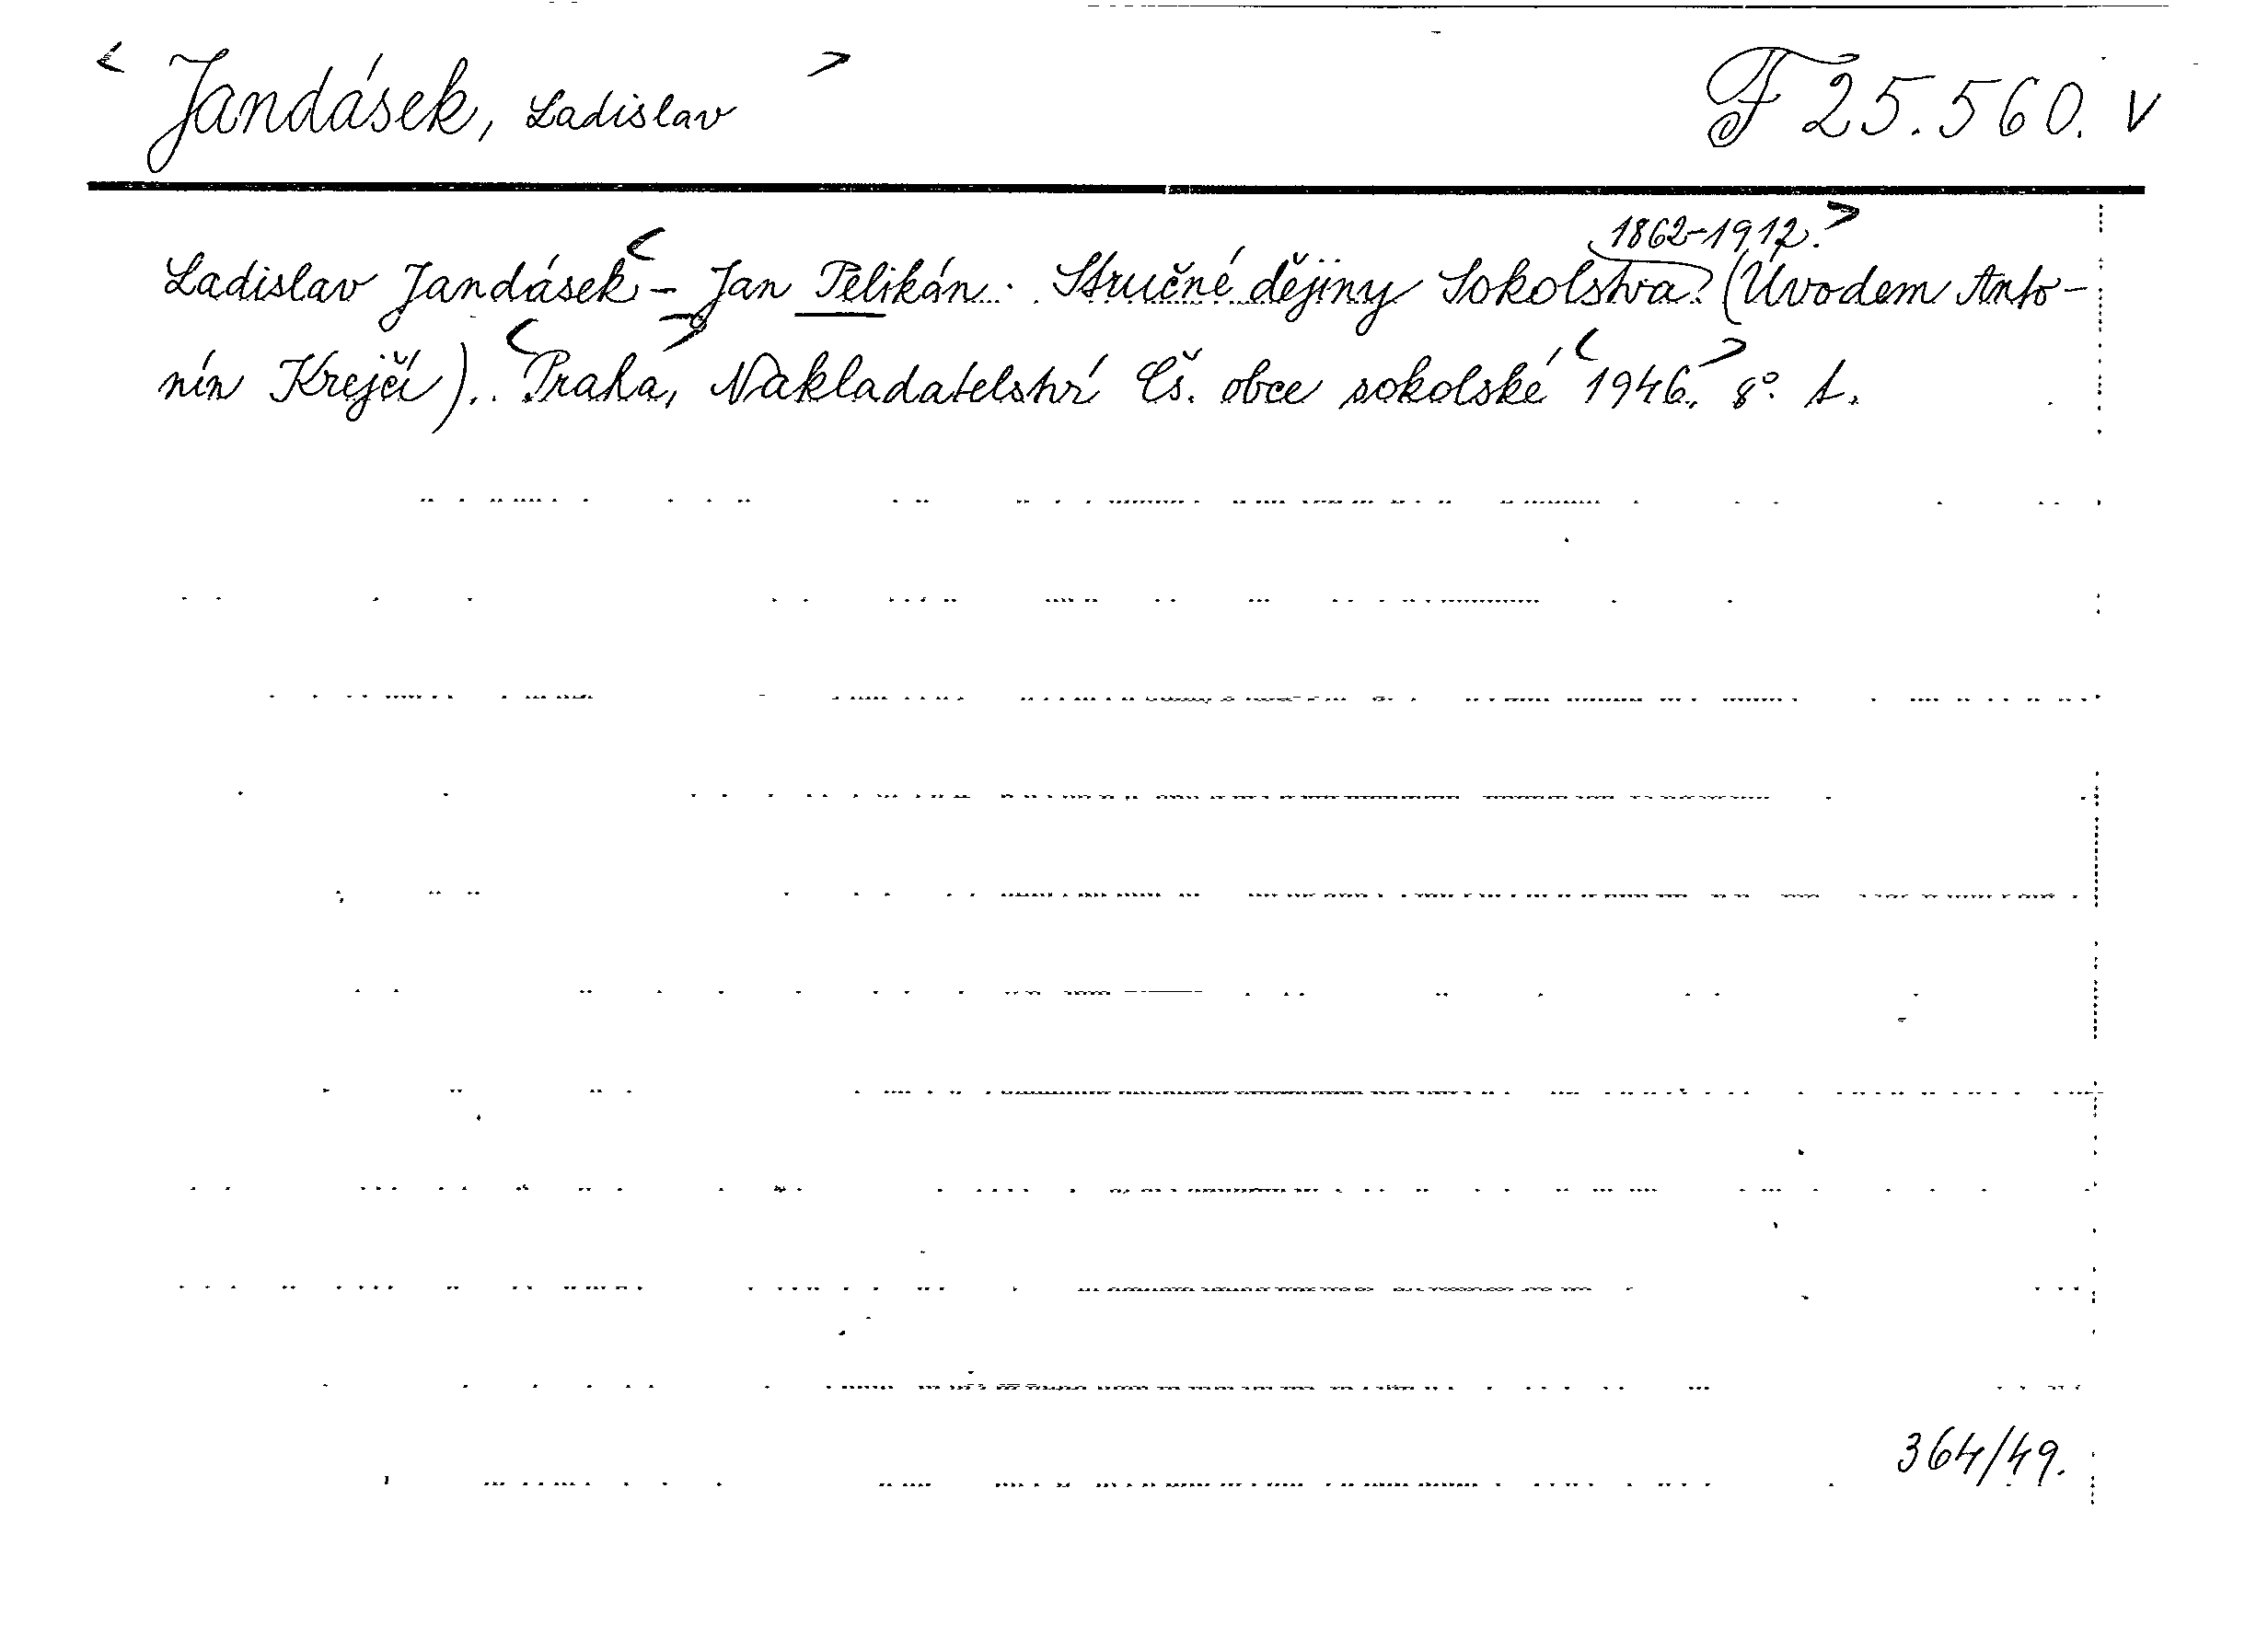 < Jandásek, Ladislav > F 25.560. v
1862-1912. >
Ladislav Jandásek < - Jan Pelikán. Stručné dějiny Sokolstva. (Úvodem Anto-
nín Krejčí). < Praha, > Nakladatelství Čs. obce sokolské < 1946. > 8°. t.
364/49.